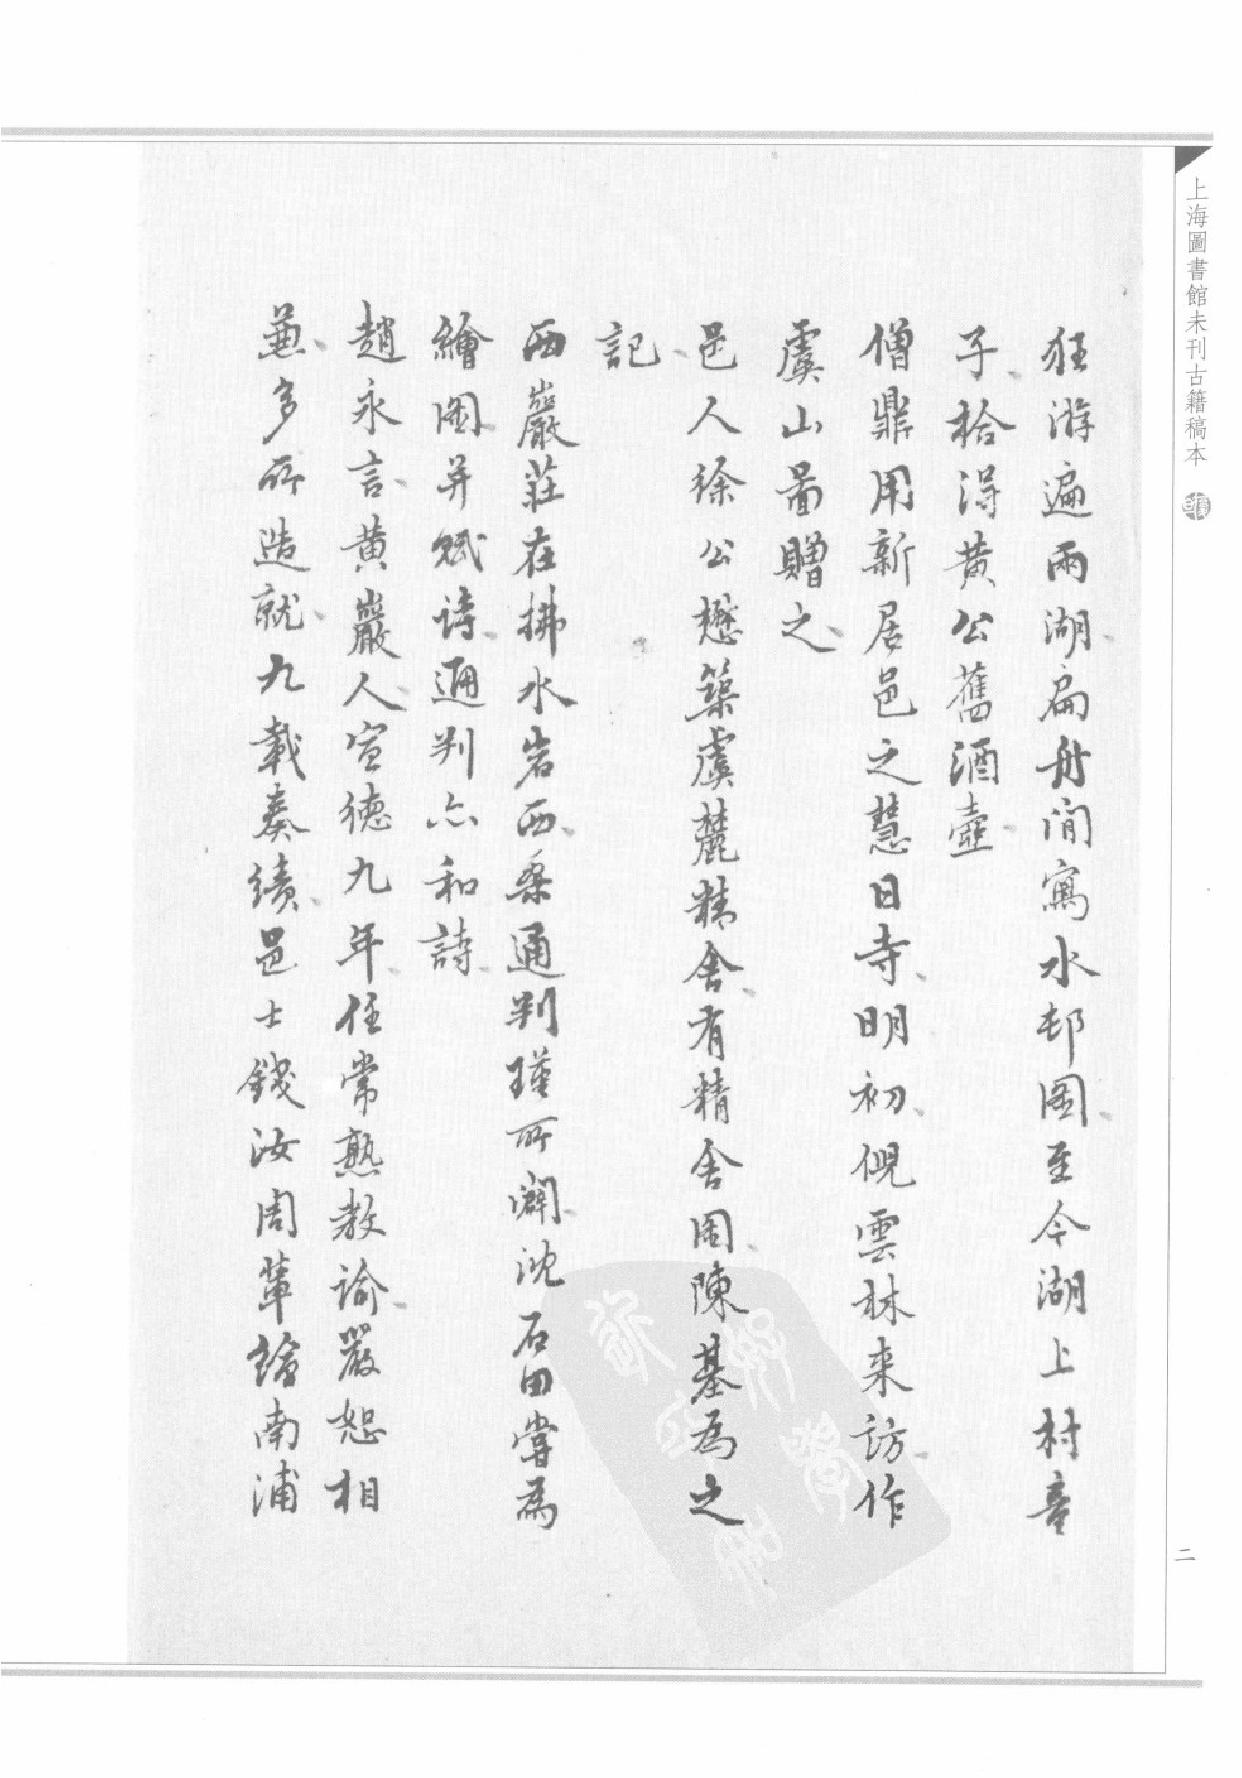 上海圖書館未刊古籍稿本
二
狂游遍兩湖扁舟閒寫水邨圖至今湖上村童
子拾得黃公舊酒壺
僧鼎用新居邑之慧日寺明初倪雲林来訪作
虞山啚贈之
邑人徐公懋築虞麓精舍有精舍圖陳基為之
記
西巖莊在拂水岩西桑通判瑾所闢沈石田嘗為
繪圖并賦诗通判亦和詩
趙永言黃巖人宣德九年任常熟教諭嚴恕相
兼多所造就九載奏績邑士錢汝周輩繪南浦